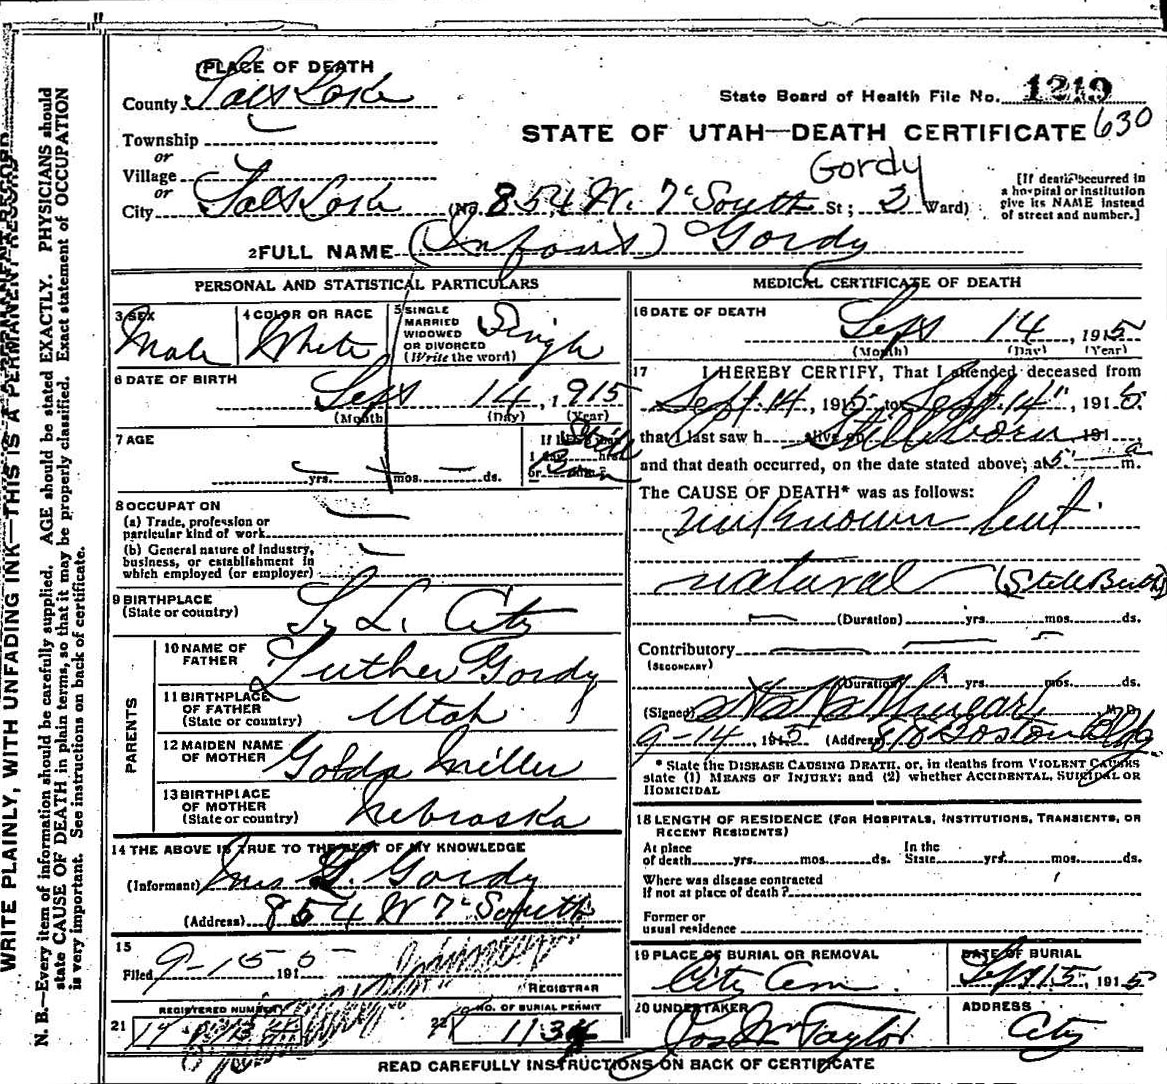 WRITE PLAINLY, WITH UNFADING INK—THIS IS A PERMANENT RECORD
N. B.—Every item of information should be carefully supplied. AGE should be stated EXACTLY. PHYSICIANS should
state CAUSE OF DEATH in plain terms, so that it may be properly classified. Exact statement of OCCUPATION
is very important. See instructions on back of certificate.
PLACE OF DEATH
County Salt Lake
State Board of Health File No. 1219
Township
STATE OF UTAH—DEATH CERTIFICATE 630
or
Village
Gordy
or
City Salt Lake (No. 854 W. 7" South St; 2 Ward)
[If death occurred in
a hospital or institution
give its NAME instead
of street and number.]
2 FULL NAME (Infant) Gordy
PERSONAL AND STATISTICAL PARTICULARS
3 SEX
Male
4 COLOR OR RACE
White
5 SINGLE
MARRIED
WIDOWED
OR DIVORCED
(Write the word)
Single
6 DATE OF BIRTH
Sept 14, 1915
(Month) (Day) (Year)
7 AGE
yrs. mos. ds.
If LESS than
1 day hrs.
or min.?
Still
Born
8 OCCUPATION
(a) Trade, profession or
particular kind of work
(b) General nature of industry,
business, or establishment in
which employed (or employer)
9 BIRTHPLACE
(State or country) S. L. City
PARENTS
10 NAME OF
FATHER Luther Gordy
11 BIRTHPLACE
OF FATHER
(State or country) Utah
12 MAIDEN NAME
OF MOTHER Golda Miller
13 BIRTHPLACE
OF MOTHER
(State or country) Nebraska
14 THE ABOVE IS TRUE TO THE BEST OF MY KNOWLEDGE
(Informant) Mrs L. Gordy
(Address) 854 W 7" South
15
Filed 9-15 1915
REGISTRAR
REGISTERED NUMBER
21
NO. OF BURIAL PERMIT
22 1134
MEDICAL CERTIFICATE OF DEATH
16 DATE OF DEATH
Sept 14, 1915
(Month) (Day) (Year)
17 I HEREBY CERTIFY, That I attended deceased from
Sept. 14, 1915 to Sept. 14", 1915.
that I last saw h alive on Stillborn 191
and that death occurred, on the date stated above, at 5 a m.
The CAUSE OF DEATH* was as follows:
unknown but
natural (Still Birth)
(Duration) yrs. mos. ds.
Contributory
(SECONDARY)
(Duration) yrs. mos. ds.
(Signed) M. D.
9-14, 1915 (Address) 818 Boston Bldg.
* State the DISEASE CAUSING DEATH, or, in deaths from VIOLENT CAUSES
state (1) MEANS OF INJURY; and (2) whether ACCIDENTAL, SUICIDAL OR
HOMICIDAL
18 LENGTH OF RESIDENCE (FOR HOSPITALS, INSTITUTIONS, TRANSIENTS, OR
RECENT RESIDENTS)
At place
of death yrs. mos. ds.
In the
State yrs. mos. ds.
Where was disease contracted
If not at place of death?
Former or
usual residence
19 PLACE OF BURIAL OR REMOVAL
City Cem
DATE OF BURIAL
Sept 15, 1915
20 UNDERTAKER
Jos Wm Taylor
ADDRESS
City
READ CAREFULLY INSTRUCTIONS ON BACK OF CERTIFICATE